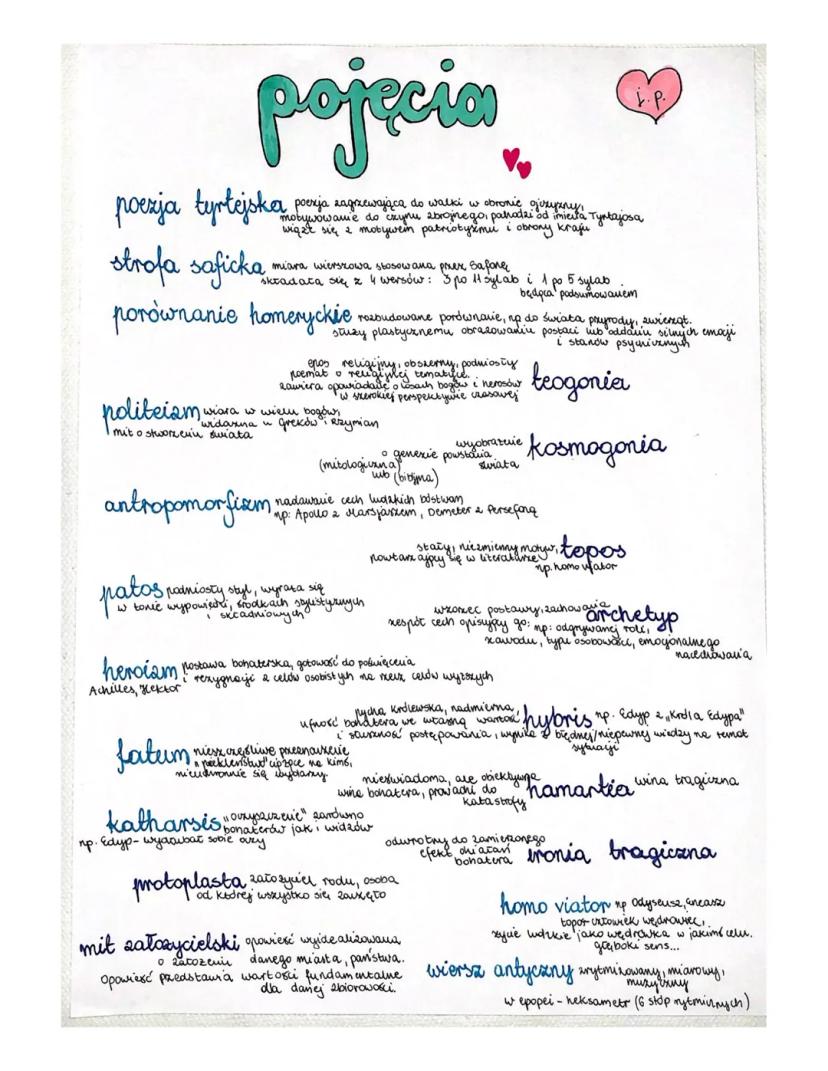 pojęcia
j.p.
poezja tyrtejska poezja zagrzewająca do walki w obronie ojczyzny,
motywowanie do czynu zbrojnego, pochodzi od imienia Tyrtajosa
wiąże się z motywem patriotyzmu i obrony kraju
strofa saficka miara wierszowa stosowana przez Safonę
składała się z 4 wersów: 3 po 11 sylab i 1 po 5 sylab
będąca podsumowaniem
porównanie homeryckie rozbudowane porównanie, np do świata przyrody, zwierząt.
służy plastycznemu obrazowaniu postaci lub oddaniu silnych emocji
i stanów psychicznych
epos religijny, obszerny, podniosły
poemat o religijnej tematyce.
zawiera opowiadanie o losach bogów i herosów
w szerokiej perspektywie czasowej
teogonia
politeizm wiara w wielu bogów,
widoczna u Greków i Rzymian
mit o stworzeniu świata
wyobrażenie kosmogonia
o genezie powstania
świata
(mitologiczna)
lub (biblijna)
antropomorfizm nadawanie cech ludzkich bóstwom
np: Apollo z Marsjaszem, Demeter z Persefoną
stały, niezmienny motyw, topos
powtarzający się w literaturze
np. homo viator
patos podniosły styl, wyraża się
w tonie wypowiedzi, środkach stylistycznych
i składniowych
wzorzec postawy, zachowania archetyp
zespół cech opisujący go: np: odgrywanej roli,
zawodu, typu osobowości, emocjonalnego
nacechowania
heroizm postawa bohaterska, gotowość do poświęcenia
i rezygnacji z celów osobistych na rzecz celów wyższych
Achilles, Hektor
pycha królewska, nadmierna,
ufność bohatera we własną wartość hybris np. Edyp z "Króla Edypa"
i słuszność postępowania, wynika z błędnej/niepewnej wiedzy na temat
sytuacji
fatum nieszczęśliwe przeznaczenie
"przekleństwo" ciążące na kimś,
nieuchronnie się wydarzy
nieświadoma, ale obiektywna
wina bohatera, prowadzi do
katastrofy
hamartia wina tragiczna
katharsis "oczyszczenie" zarówno
bohaterów jak i widzów
np. Edyp - wydłubał sobie oczy
odwrotny do zamierzonego
efekt działań
bohatera
ironia tragiczna
protoplasta założyciel rodu, osoba
od której wszystko się zaczęło
homo viator np Odyseusz, Eneasz
topos człowiek wędrowiec,
życie ludzkie jako wędrówka w jakimś celu.
głęboki sens...
mit założycielski opowieść wyidealizowana
o założeniu danego miasta, państwa.
Opowieść przedstawia wartości fundamentalne
dla danej zbiorowości.
wiersz antyczny zrytmizowany, miarowy,
muzyczny
w epopei - heksametr (6 stóp rytmicznych)